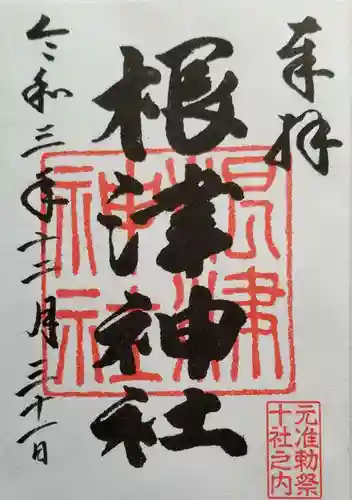 奉拝
根津神社
根津
神社
令和三年十二月三十一日
元准勅祭
十社之内